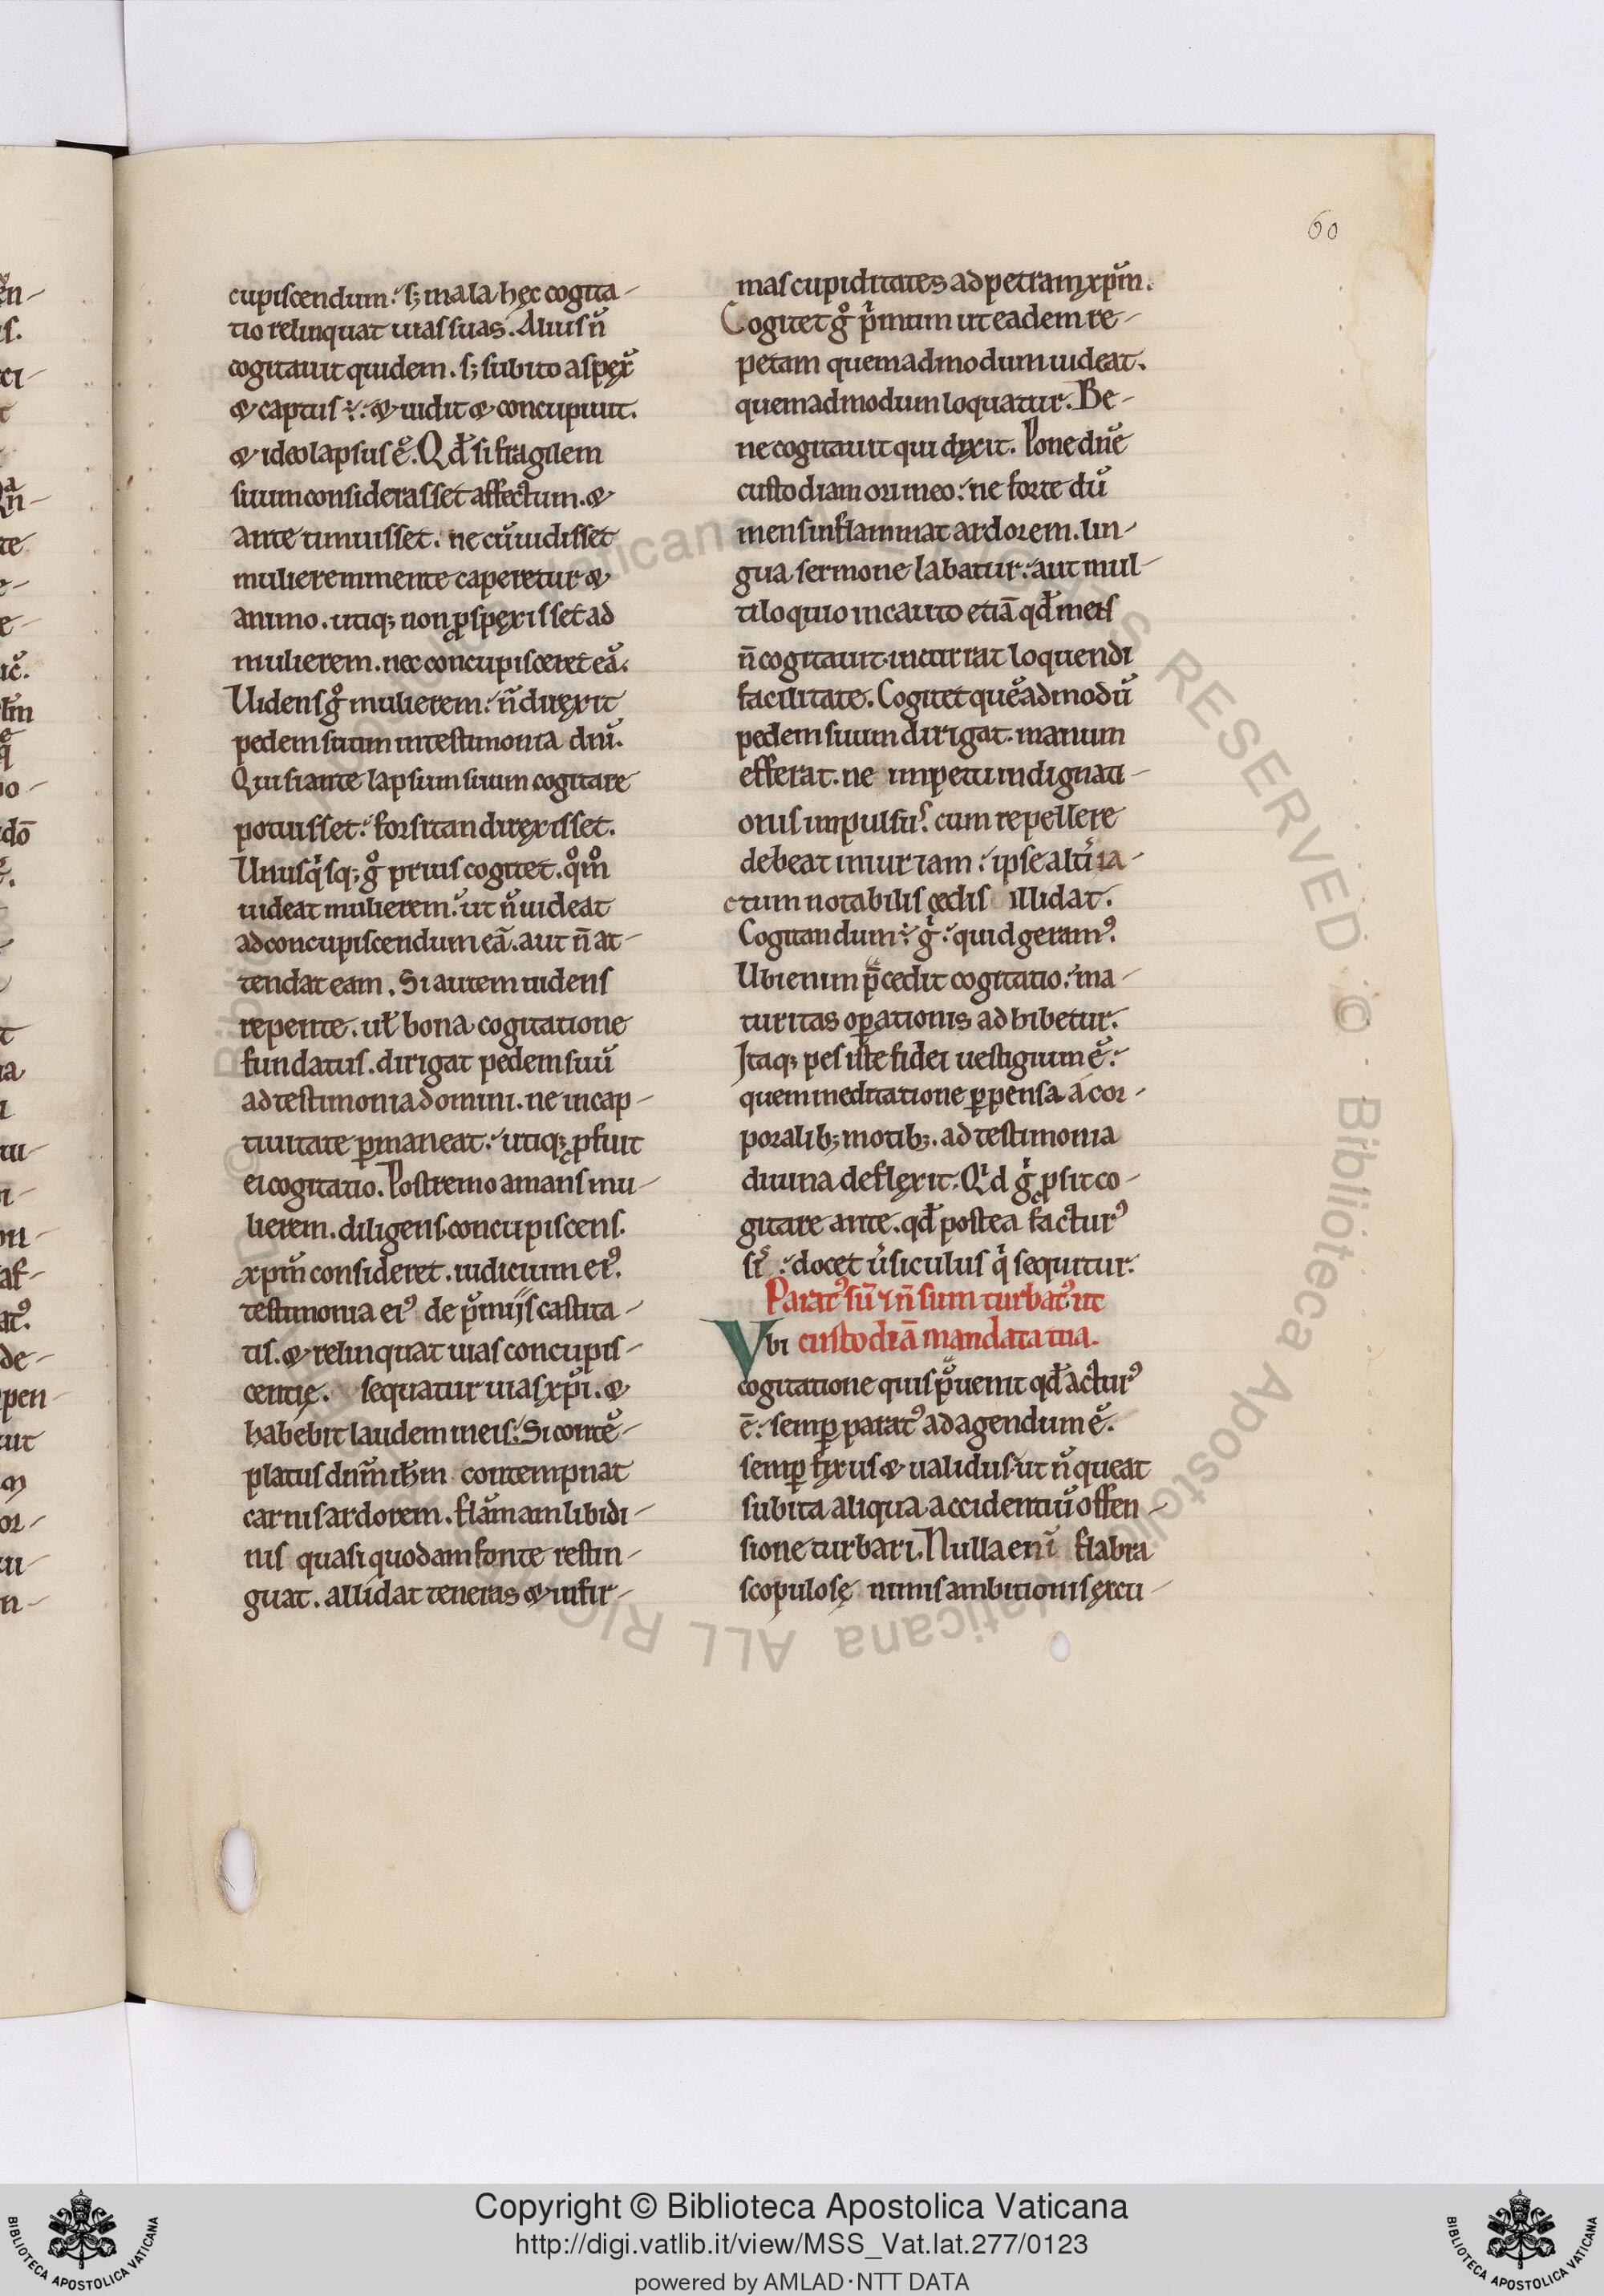 60
cupiscendum. sꝫ mala hęc cogita-
tio relinquat uias suas. Alius n̄
cogitauit quidem. sꝫ subito aspex̄
& captus ÷. & uidit & concupiuit.
& ideo lapsus ē. Qd̄ si fragilem
suum considerasset affectum. &
ante timuisset. ne cū uidisset
mulierem mente caperetur &
animo. utiqꝫ non ꝓspexisset ad
mulierem. nec concupisceret eā.
Uidens gͦ mulierem. n̄ direxit
pedem suum in testimonia dn̄i.
Qui si ante lapsum suum cogitare
potuisset. forsitan direxisset.
Unusqͥsqꝫ gͦ prius cogitet. qͦmͦ
uideat mulierem. ut n̄ uideat
ad concupiscendum eā. aut n̄ at-
tendat eam. Si autem uidens
repente. ul̄ bona cogitatione
fundatus. dirigat pedem suū
ad testimonia domini. ne in cap-
tiuitate ꝑmaneat. utiqꝫ ꝓfuit
ei cogitatio. Postremo amans mu-
lierem. diligens concupiscens.
xp̄m consideret. iudicium eiꝰ.
testimonia eiꝰ de p̄mijs castita-
tis. & relinquat uias concupis-
centię. sequatur uias xp̄i. &
habebit laudem in eis. Si contē-
platus dn̄m ih̄m contempnat
carnis ardorem. flāmam libidi-
nis quasi quodam fonte restin-
guat. allidat teneras & infir-
mas cupiditates ad petram xp̄m.
Cogitet gͦ pͥmum ut eadem re-
petam quemadmodum uideat.
quemadmodum loquatur. Be-
ne cogitauit qui dixit. Pone dn̄e
custodiam ori meo. ne forte dū
mens inflammat ardorem. lin-
gua sermone labatur. aut mul-
tiloquio incauto etiā qd̄ mens
n̄ cogitauit incurrat loquendi
facilitate. Cogitet quēadmodū
pedem suum dirigat. manum
efferat. ne impetu indignati-
onis impulsꝰ. cum repellere
debeat iniuriam. ipse altͥ ia-
ctum notabilis cędis illidat.
Cogitandum ÷ gͥ. quid geramꝰ.
Ubi enim p̄cedit cogitatio. ma-
turitas oꝑationis adhibetur.
Itaqꝫ pes iste fidei uestigium ē.
quem meditatione ꝑpensa a cor-
poralibꝫ motibꝫ. ad testimonia
diuina deflexit. Qͥd gͥ ꝓsit co-
gitare ante. qd̄ postea facturꝰ
sis. docet ūsiculus qͥ sequitur.
Paratꝰ sū & n̄ sum turbatꝰ ut
Vbi custodiā mandata tua.
cogitatione quis p̄uenit qd̄ acturꝰ
ē. semꝑ paratꝰ ad agendum ē.
semꝑ fixus & ualidus. ut n̄ queat
subita aliqua accidentiū offen-
sione turbari. Nulla eni̅ flabra
scopulosę nimis ambitionis excu-
Copyright © Biblioteca Apostolica Vaticana
http://digi.vatlib.it/view/MSS_Vat.lat.277/0123
powered by AMLAD·NTT DATA